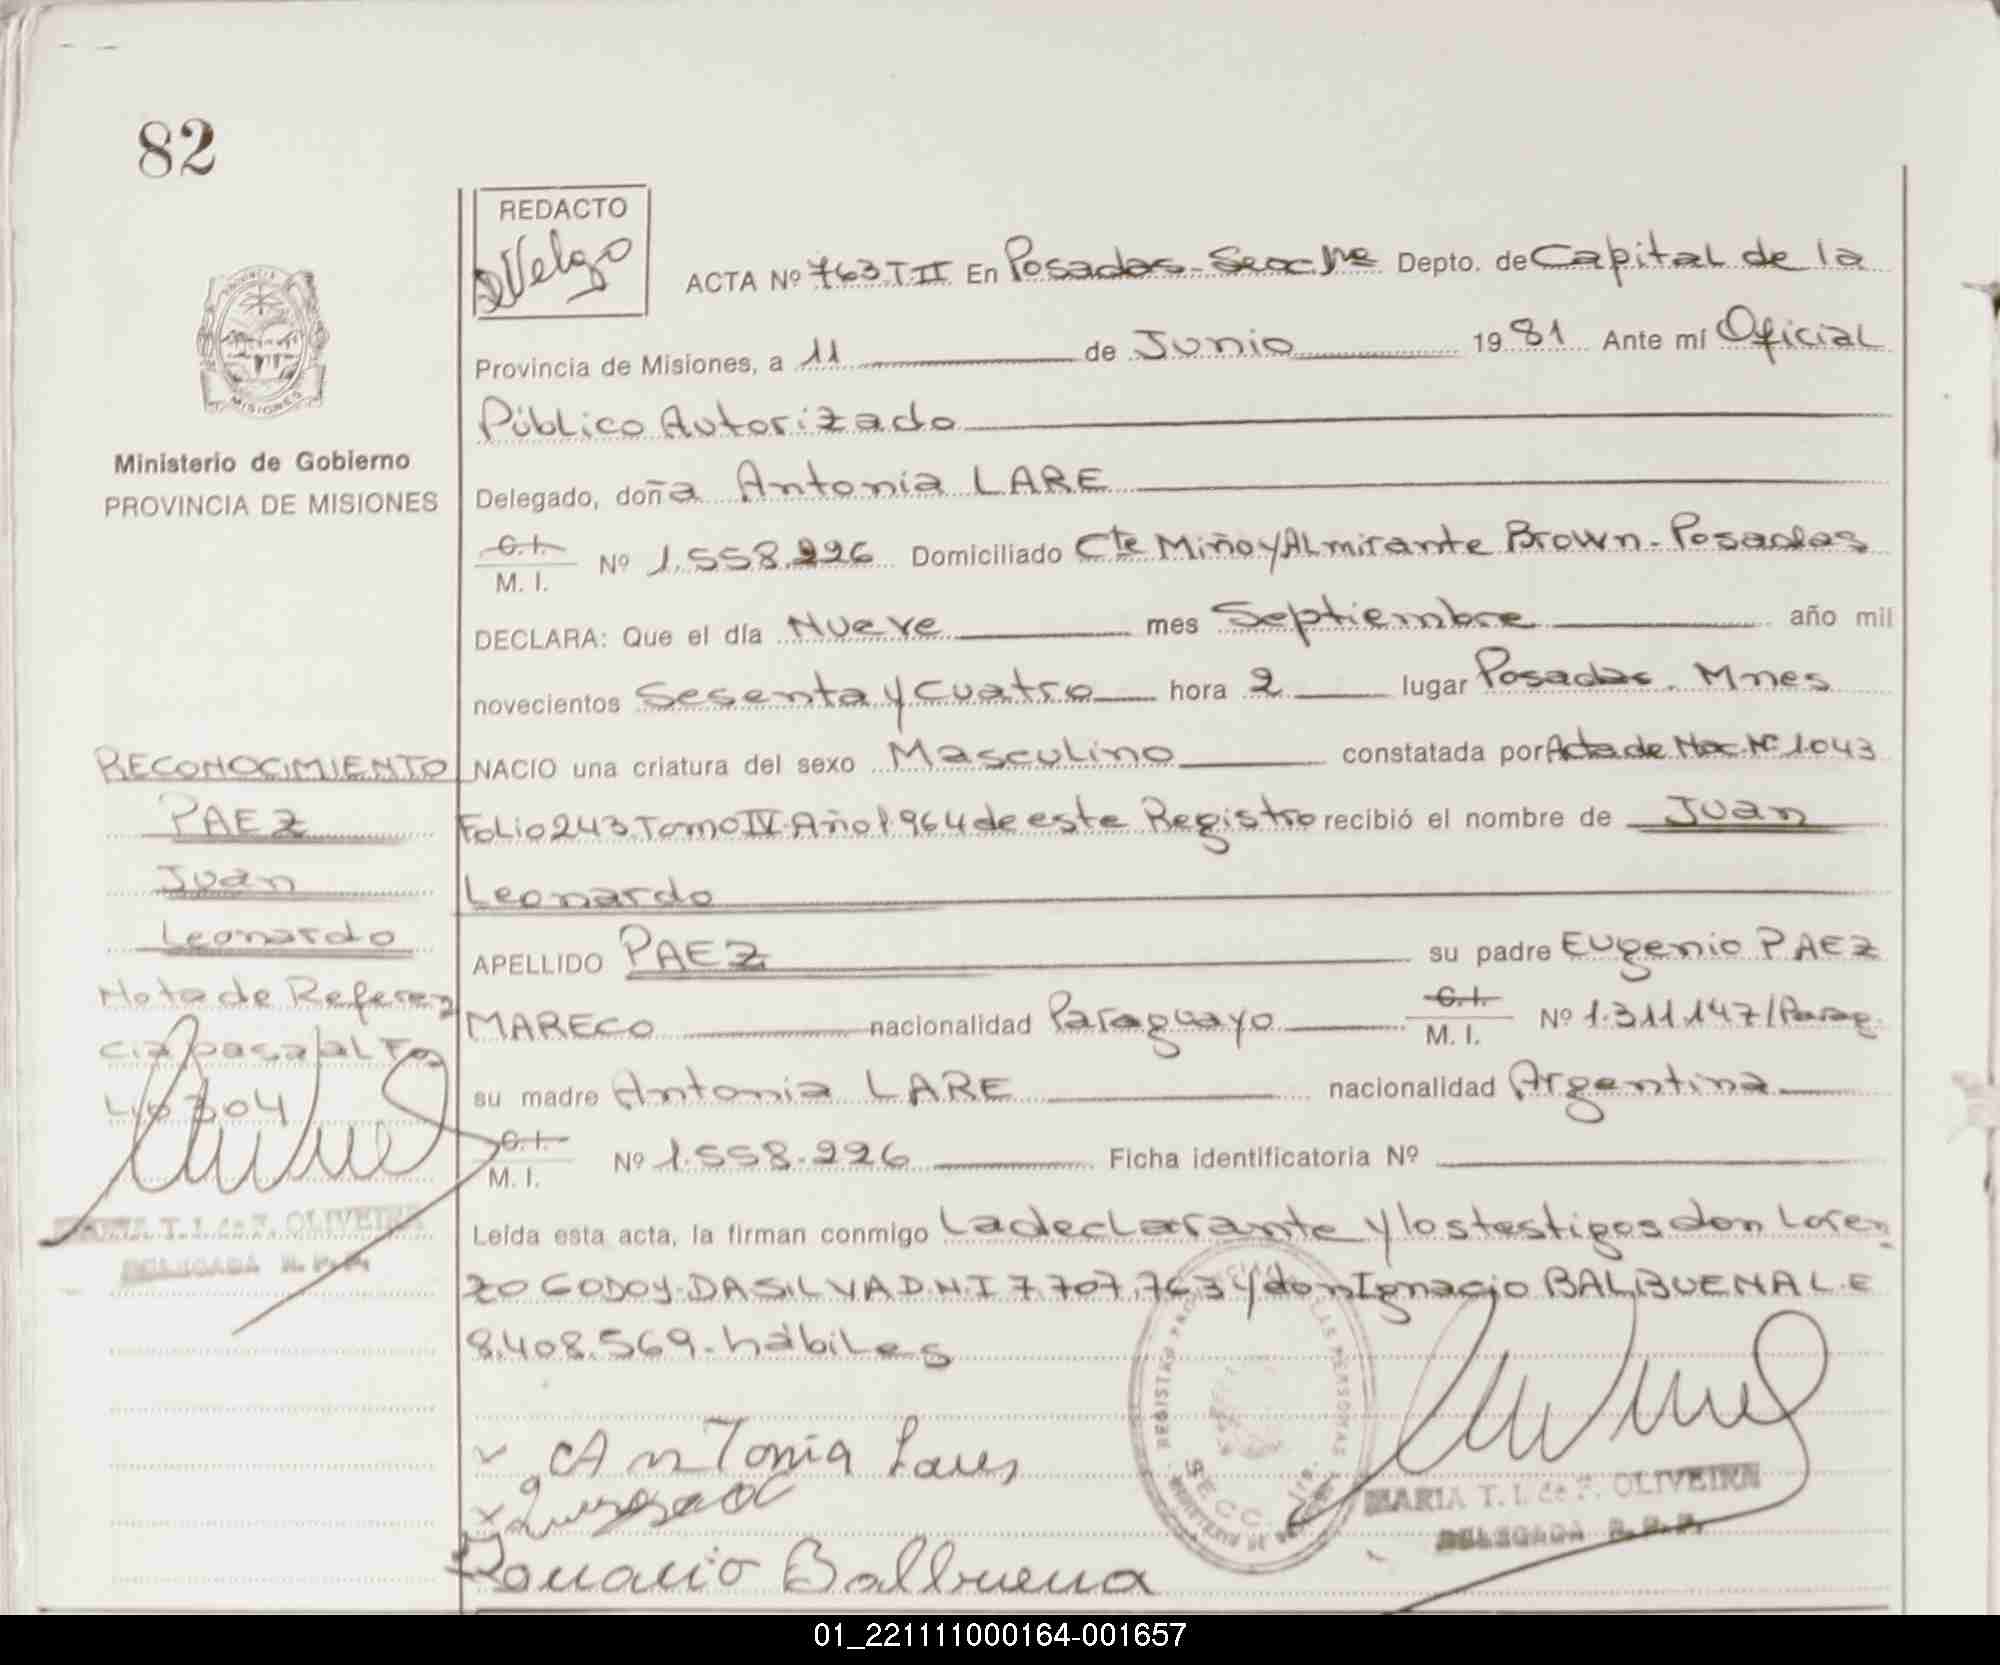 82
REDACTO
Velgo
ACTA Nº 763 T II En Posadas - Secc. 1ra Depto. de Capital de la
Provincia de Misiones, a 11 de Junio 1981 Ante mí Oficial
Público Autorizado
Ministerio de Gobierno
PROVINCIA DE MISIONES
Delegado, doña Antonia LARE
C.I.
M. I. Nº 1.558.226 Domiciliado Cte Miño y Almirante Brown - Posadas
DECLARA: Que el día Nueve mes Septiembre año mil
novecientos Sesenta y Cuatro hora 2 lugar Posadas. Mnes
NACIO una criatura del sexo Masculino constatada por Acta de Nac. Nº 1.043
Folio 243 Tomo IV Año 1964 de este Registro recibió el nombre de Juan
Leonardo
APELLIDO PAEZ su padre Eugenio PAEZ
MARECO nacionalidad Paraguayo C.I.
M. I. Nº 1.311.147/Parag.
su madre Antonia LARE nacionalidad Argentina
C.I.
M. I. Nº 1.558.226 Ficha identificatoria Nº
Leída esta acta, la firman conmigo La declarante y los testigos don Loren
zo GODOY DA SILVA D.N.I 7.707.763 y don Ignacio BALBUENA L.E
8.408.569 - hábiles
RECONOCIMIENTO
PAEZ
Juan
Leonardo
Nota de Referen
cia pasa al
MARIA T. I. de F. OLIVEIRA
DELEGADA R. P. P.
Antonia Lares
Ignacio Balbuena
REGISTRO PROV. DE LAS PERSONAS
SECC. 1ra.
MARIA T. I. de F. OLIVEIRA
DELEGADA R. P. P.
01_221111000164-001657